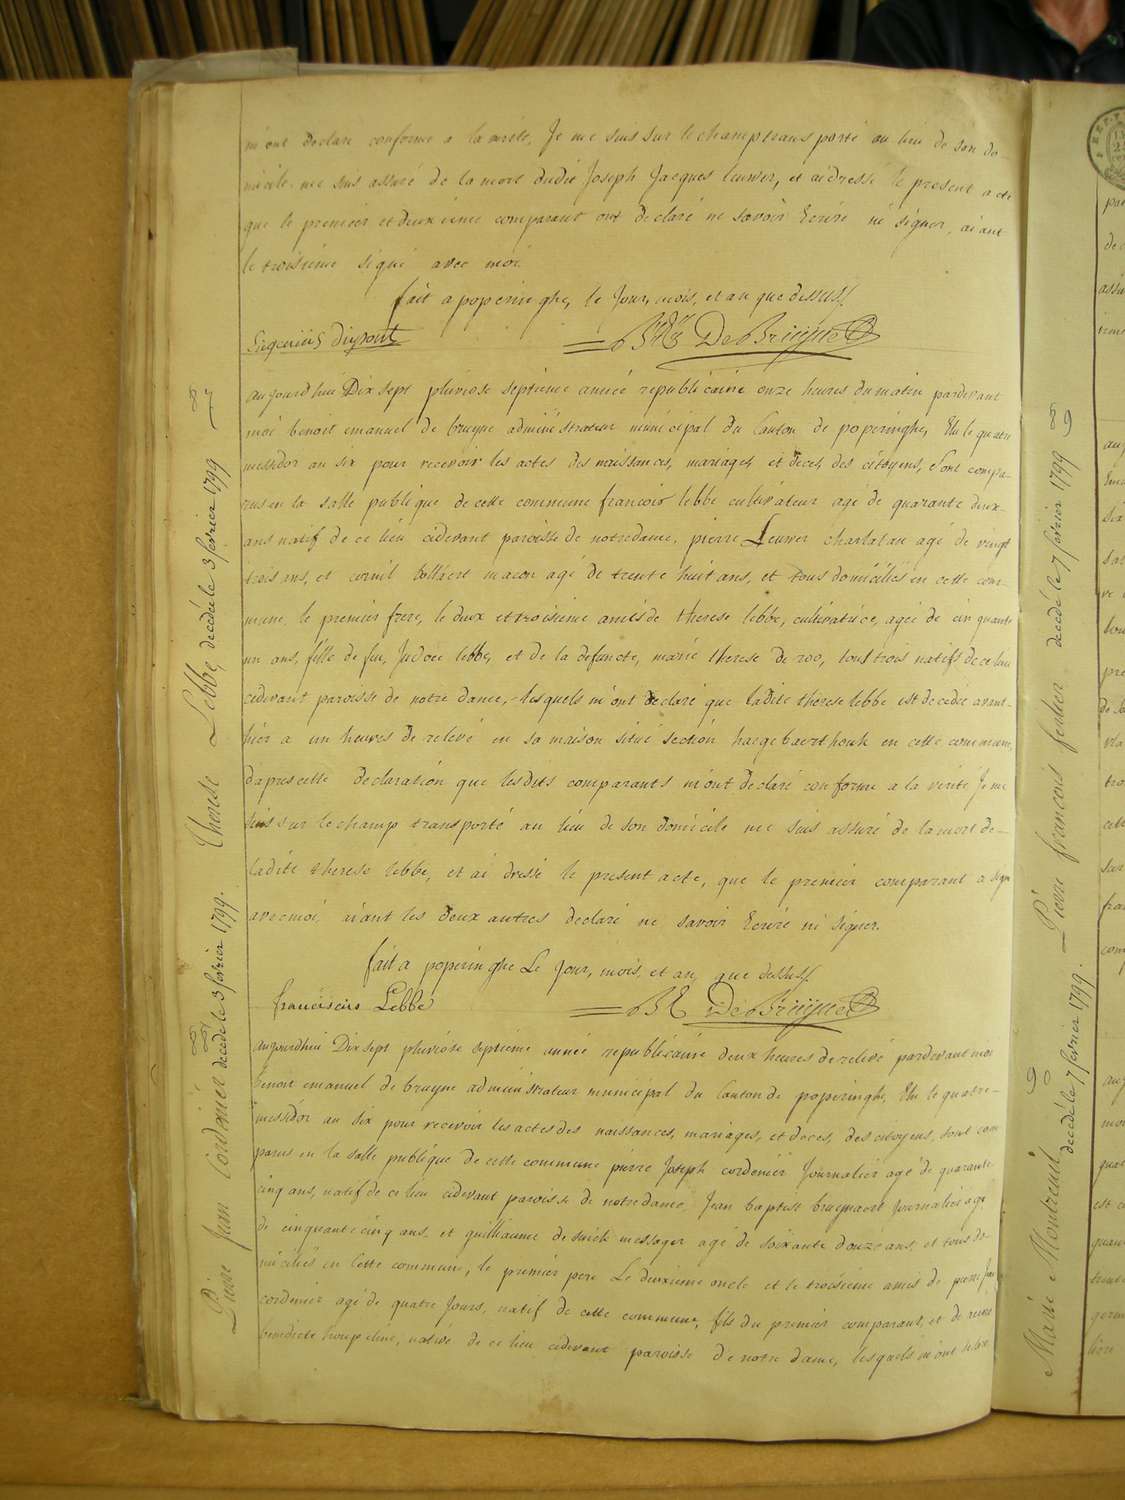 m'ont declaré conforme a la verité, Je me suis sur le champ transporté au lieu de son do-
micile me suis assuré de la mort dudit Joseph Jacques Leuwer, et ai dressé le present acte
que le premier et deuxieme comparant ont declaré ne savoir Ecrire ni signer, aiant
le troisieme signé avec moi.
fait a poperinghe, le Jour, mois, et an que dessus/.
dupont
De Bruyne
87
Therese Lebbe, decédée le 3 fevrier 1799
aujourdhui Dix sept pluviose septieme année republicaine onze heures du matin pardevant
moi benoit emanuel de bruyne administrateur municipal du Canton de poperinghe, Elu le quatre
messidor an six pour recevoir les actes des naissances, mariages, et deces, des citoyens, sont compa-
rus en la salle publique de cette commune francois lebbe cultivateur agé de quarante deux
ans natif de ce lieu cidevant paroisse de notredame, pierre Leuwer charlatan agé de vingt
trois ans, et cornil bollaert macon agé de trente huit ans, et tous domiciliés en cette com-
mune, le premier frere, le deux et troisieme amis de therese lebbe, cultivatrice, agée de cinquante
un ans, fille de feu, lebbe, et de la defuncte, marie therese de roo, tous trois natifs de ce lieu
cidevant paroisse de notre dame, lesquels m'ont declaré que ladite therese lebbe est decedée avant-
hier a un heures de relevé en sa maison situé section haegebaerthouk en cette commune,
daprescette declaration que lesdits comparants m'ont declaré conforme a la verité Je me
suis sur le champ transporté au lieu de son domicile me suis assuré de la mort de-
ladite therese lebbe, et ai dressé le present acte, que le premier comparant a signé
avec moi, aiant les deux autres declaré ne savoir Ecrire ni signer.
fait a poperinghe Le Jour, mois, et an, que dessus/.
franciscus Lebbe
B E De Bruyne
88
Pierre Jean Cordenier decédé le 3 fevrier 1799.
aujourdhui Dix sept pluviose septieme année republicaine deux heures de relevé pardevant moi
benoit emanuel de bruyne administrateur municipal du Canton de poperinghe, Elu le quatre-
messidor an six pour recevoir les actes des naissances, mariages, et deces, des citoyens, sont com
parus en la salle publique de cette commune pierre Joseph cordenier Journalier agé de quarante
cinq ans, natif de ce lieu cidevant paroisse de notredame, Jean baptist bruynaert Journalier agé
de cinquante cinq ans, et guilliaume messager agé de soixante douze ans, et tous do-
miciliés en cette commune, le premier pere Le deuxieme oncle et le troisieme amis de pierre Jean
cordenier agé de quatre Jours, natif de cette commune, fils du premier comparant, et de
benedicte native de ce lieu cidevant paroisse de notre dame, lesquels m'ont declaré
89
Pierre francois decédé le 7 fevrier 1799
90
Marie Montreuil decédé le 7 fevrier 1799.